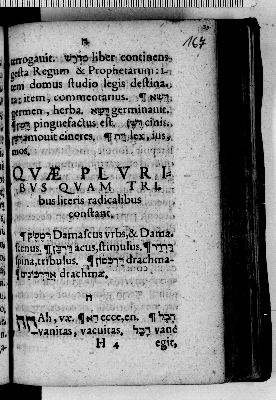 ה
167
terrogauit. מדרש liber continens
gesta Regum & Prophetarum: i-
tem domus studio legis destina
ta: item, commentarius. ¶ דשא
germen, herba. דשא germinauit.
¶ דשן pinguefactus est. דשן cinis.
דשן amouit cineres. ¶ דת lex, ius,
mos.
QVÆ PLVRI-
BVS QVAM TRI-
bus literis radicalibus
constant.
¶ דמשק Damascus vrbs, & Dama
scenus. ¶ דרבן acus, stimulus. ¶ דרדר
spina, tribulus. ¶ דרכמון drachma
¶ אדרכמון drachma.
ה
הה Ah, væ. ¶ הא ecce, en. ¶ הבל
vanitas, vacuitas. הבל vane
H 4 egit,